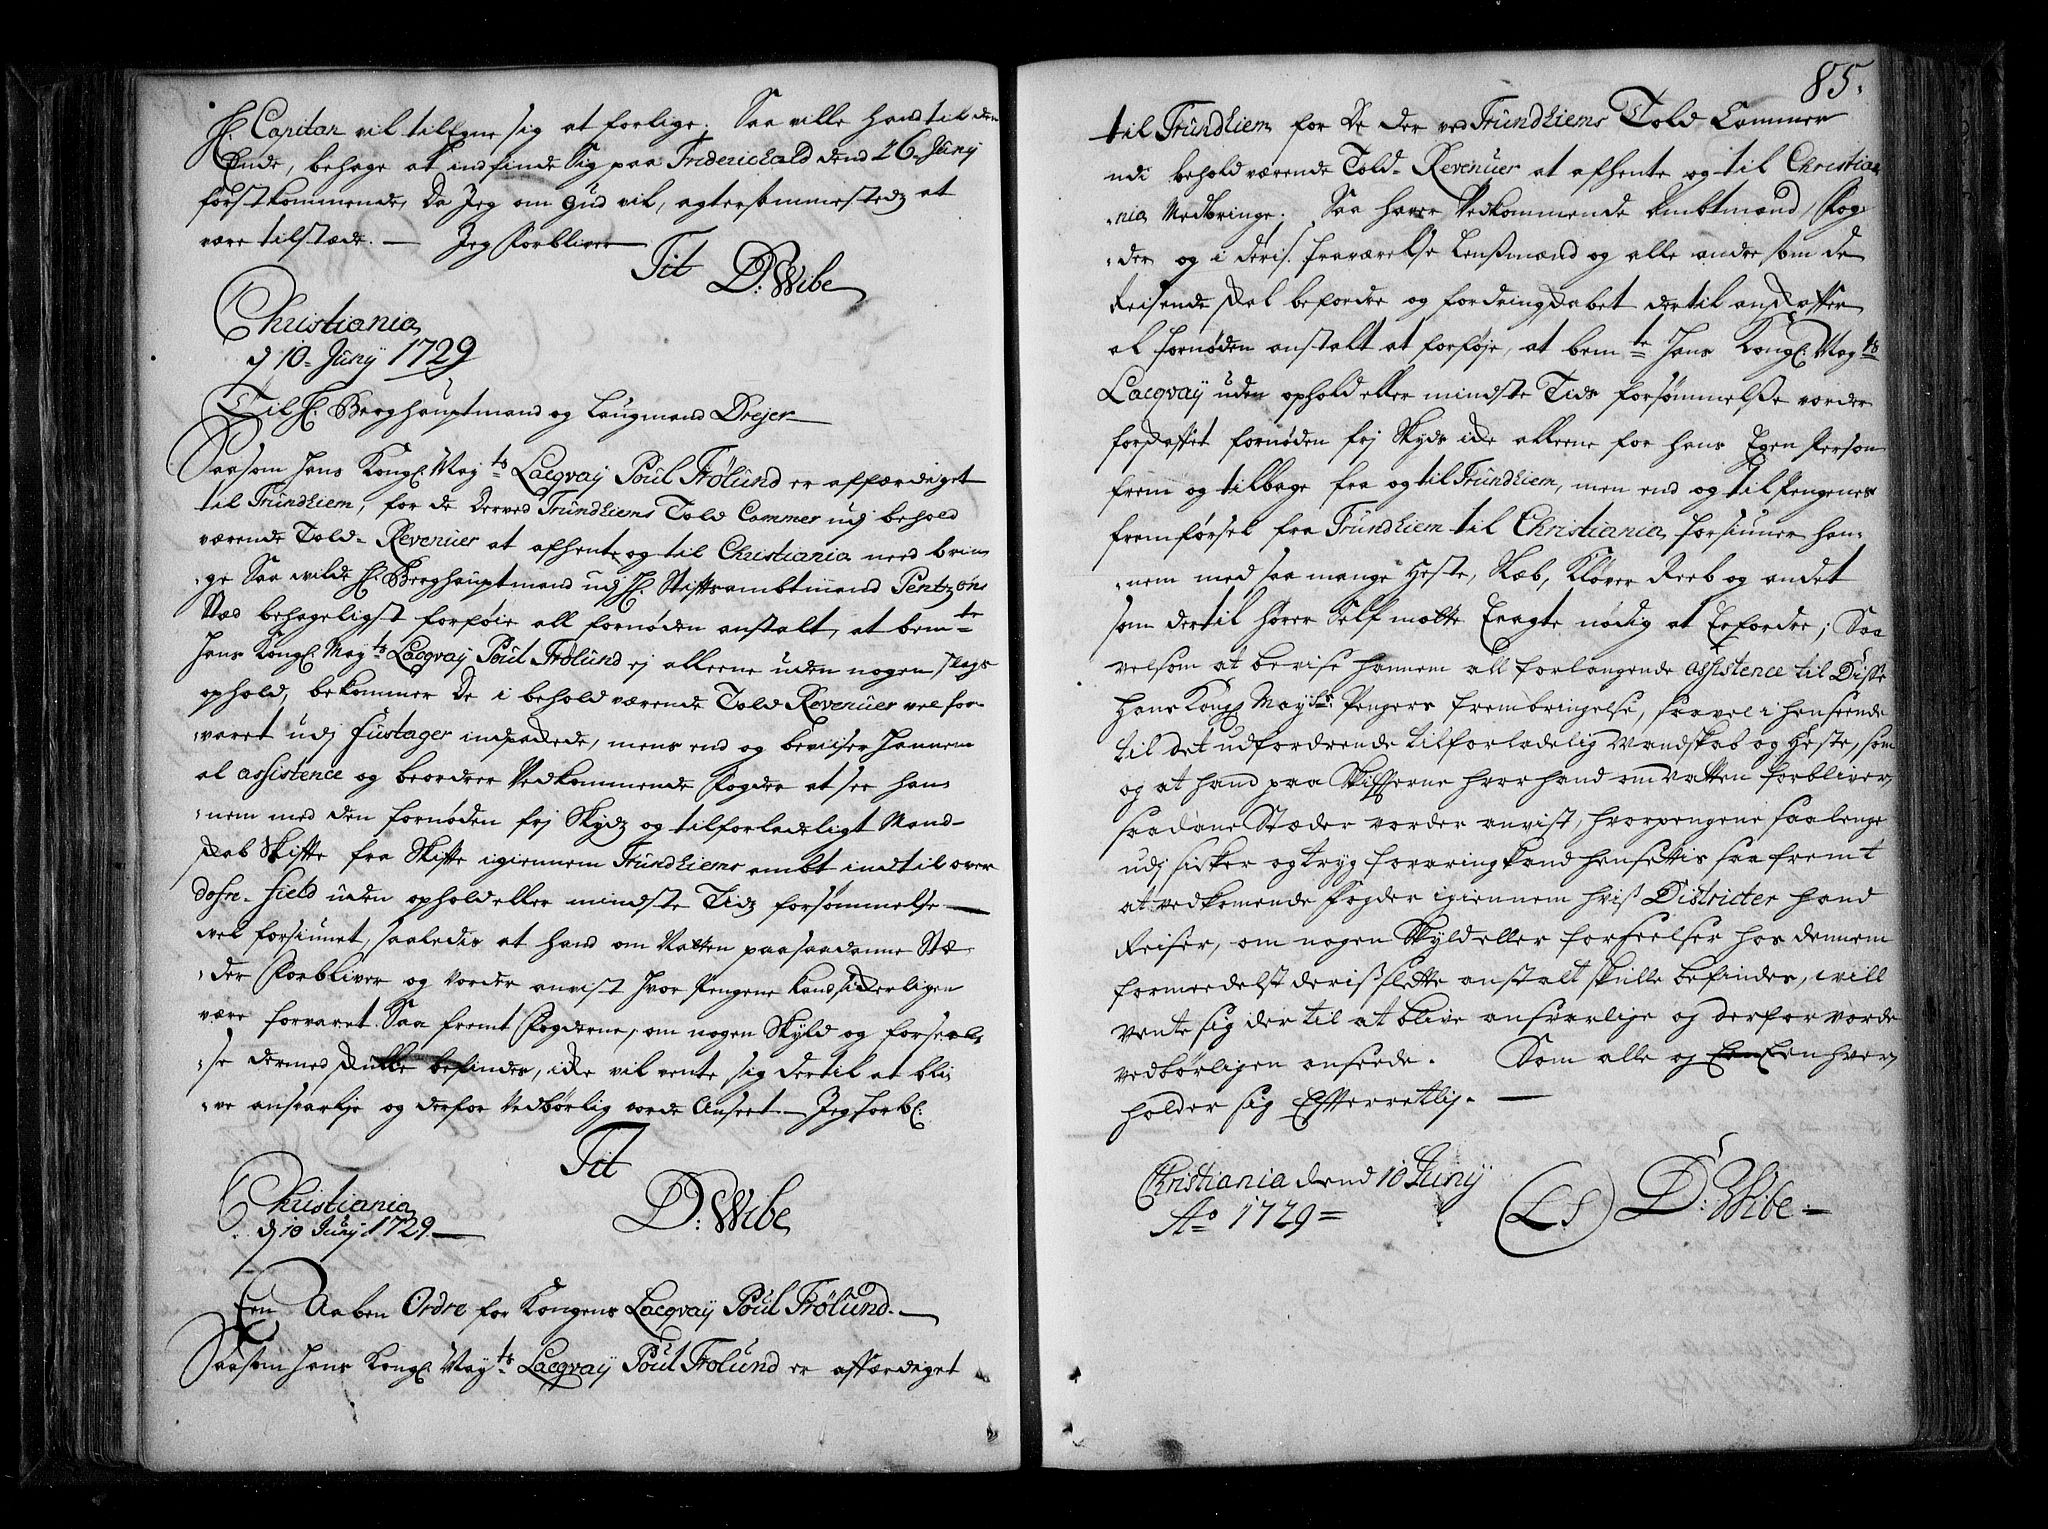 H: Capitan vil tilEgne sig at forlige; Saa ville Hand til den
Ende, behage at indfinde Sig paa Friderichald dend 26 Juny
förstkommende, Da Jeg om gud vil, agter sammestedz at
være tilstæde. — Jeg Forbliver
Tit D: Wibe
Christiania
d 10 Junÿ 1729
Til H: Berghauptmand og Laugmand Drejer
Saasom Hans Kongl: May.ts Lacqvaÿ Poul Frölund er affærdiget
til Trundhiem, for de Derved Trundhiems Told Cammer udj behold
værende Told-Revenuer at afhente og til Christiania med brin-
-ge Saa wilde H: Berghauptmand udj H: Stiftsambtmand Pentzöns
Stæd behageligst forföie all fornöden anstalt, at bem.te
Hans Kongl: May.ts Lacqvaÿ Poul Frölund ej alleene uden nogen slags
ophold, bekommer De i behold værende Told Revenuer vel for-
-varet udj Fustager indpackede, mens end og beviiser Hannem
al assistence og beordrer Vedkommende Fogder at see han-
-nem med den fornöden frj Skydz og tilforladeligt Mand-
skab Skifte fra Skifte igiennem Trundhiems ambt indtil over
Dofre-Field uden ophold eller mindste Tidz forsömmelse —
vel forsiunet, saaledis at hand om Natten paa saadanne Stæ-
-der Forbliver og Vorder anvist Hvor Pengene kand sickerligen
være forvaret. Saa fremt Fogderne, om nogen Skyld og forseel-
-se dermed skulle befindes, icke vil vente sig dertil at bli-
-ve ansvarlje og derfor Vedbörlig vorde Anseet. — Jeg forbl:
Tit
D: Wibe
Christiania
d 10 Junj 1729 —
Een Aaben Ordre for Kongens Lacqvaÿ Poul Frölund. —
Saasom Hans Kongl: May.ts Lacqvaÿ Poul Frolund er affærdiget
85.
til Trundhiem for De der ved Trundhiems Told Cammer
udi behold værende Told-Revenuer at afhente og til Christia-
-nia Medbringe. Saa haver Vedkommende Ambtmænd, Fog-
-der og i deris fraværelse Lensmænd og alle andre som de
Reisende skal befordre og fordringskabet dertil anskaffer
al fornöden anstalt at forföje, at bem.te Hans Kongl: May.ts
Lacqvaÿ uden ophold eller mindste Tids forsömmelse vorder
forskaffet fornöden frj Skyds icke alleene for hans Egen Person
frem og tilbage fra og til Trundhiem, men end og til Pengenes
fremförsel fra Trundhiem til Christiania, forsiuner han-
-nem med saa mange Heste, Kløver Reeb og andet
som dertil hører Self motte Eragte nödig at Erfordre; Saa
velsom at bevise hannem all forlangende assistence til Disse
Hans Kongl May.ts Pengers frembringelse, saavel i henseende
til det udfordrende tilforladelig Mandskab og Heste, som
og at hand paa Skifterne hvor hand om Natten forbliver,
saadane Stæder vorder anvist, hvor pengene saalenge
udj sicker og tryg forvaring kand hensettis saa fremt
at vedkomende Fogder igiennem hvis Districter hand
Reiser, om nogen Skyld eller forseelser hos dennem
formedelst deris slette anstalt skulle befindes, ei vill
vente sig der til at blive ansvarlige og derfor vorde
vedbörligen anseede. Som alle og Een Eenhver
holder sig Efterretlig. —
Christiania dend 10 Junÿ
Ao 1729 =
(L S) D: Wibe. —